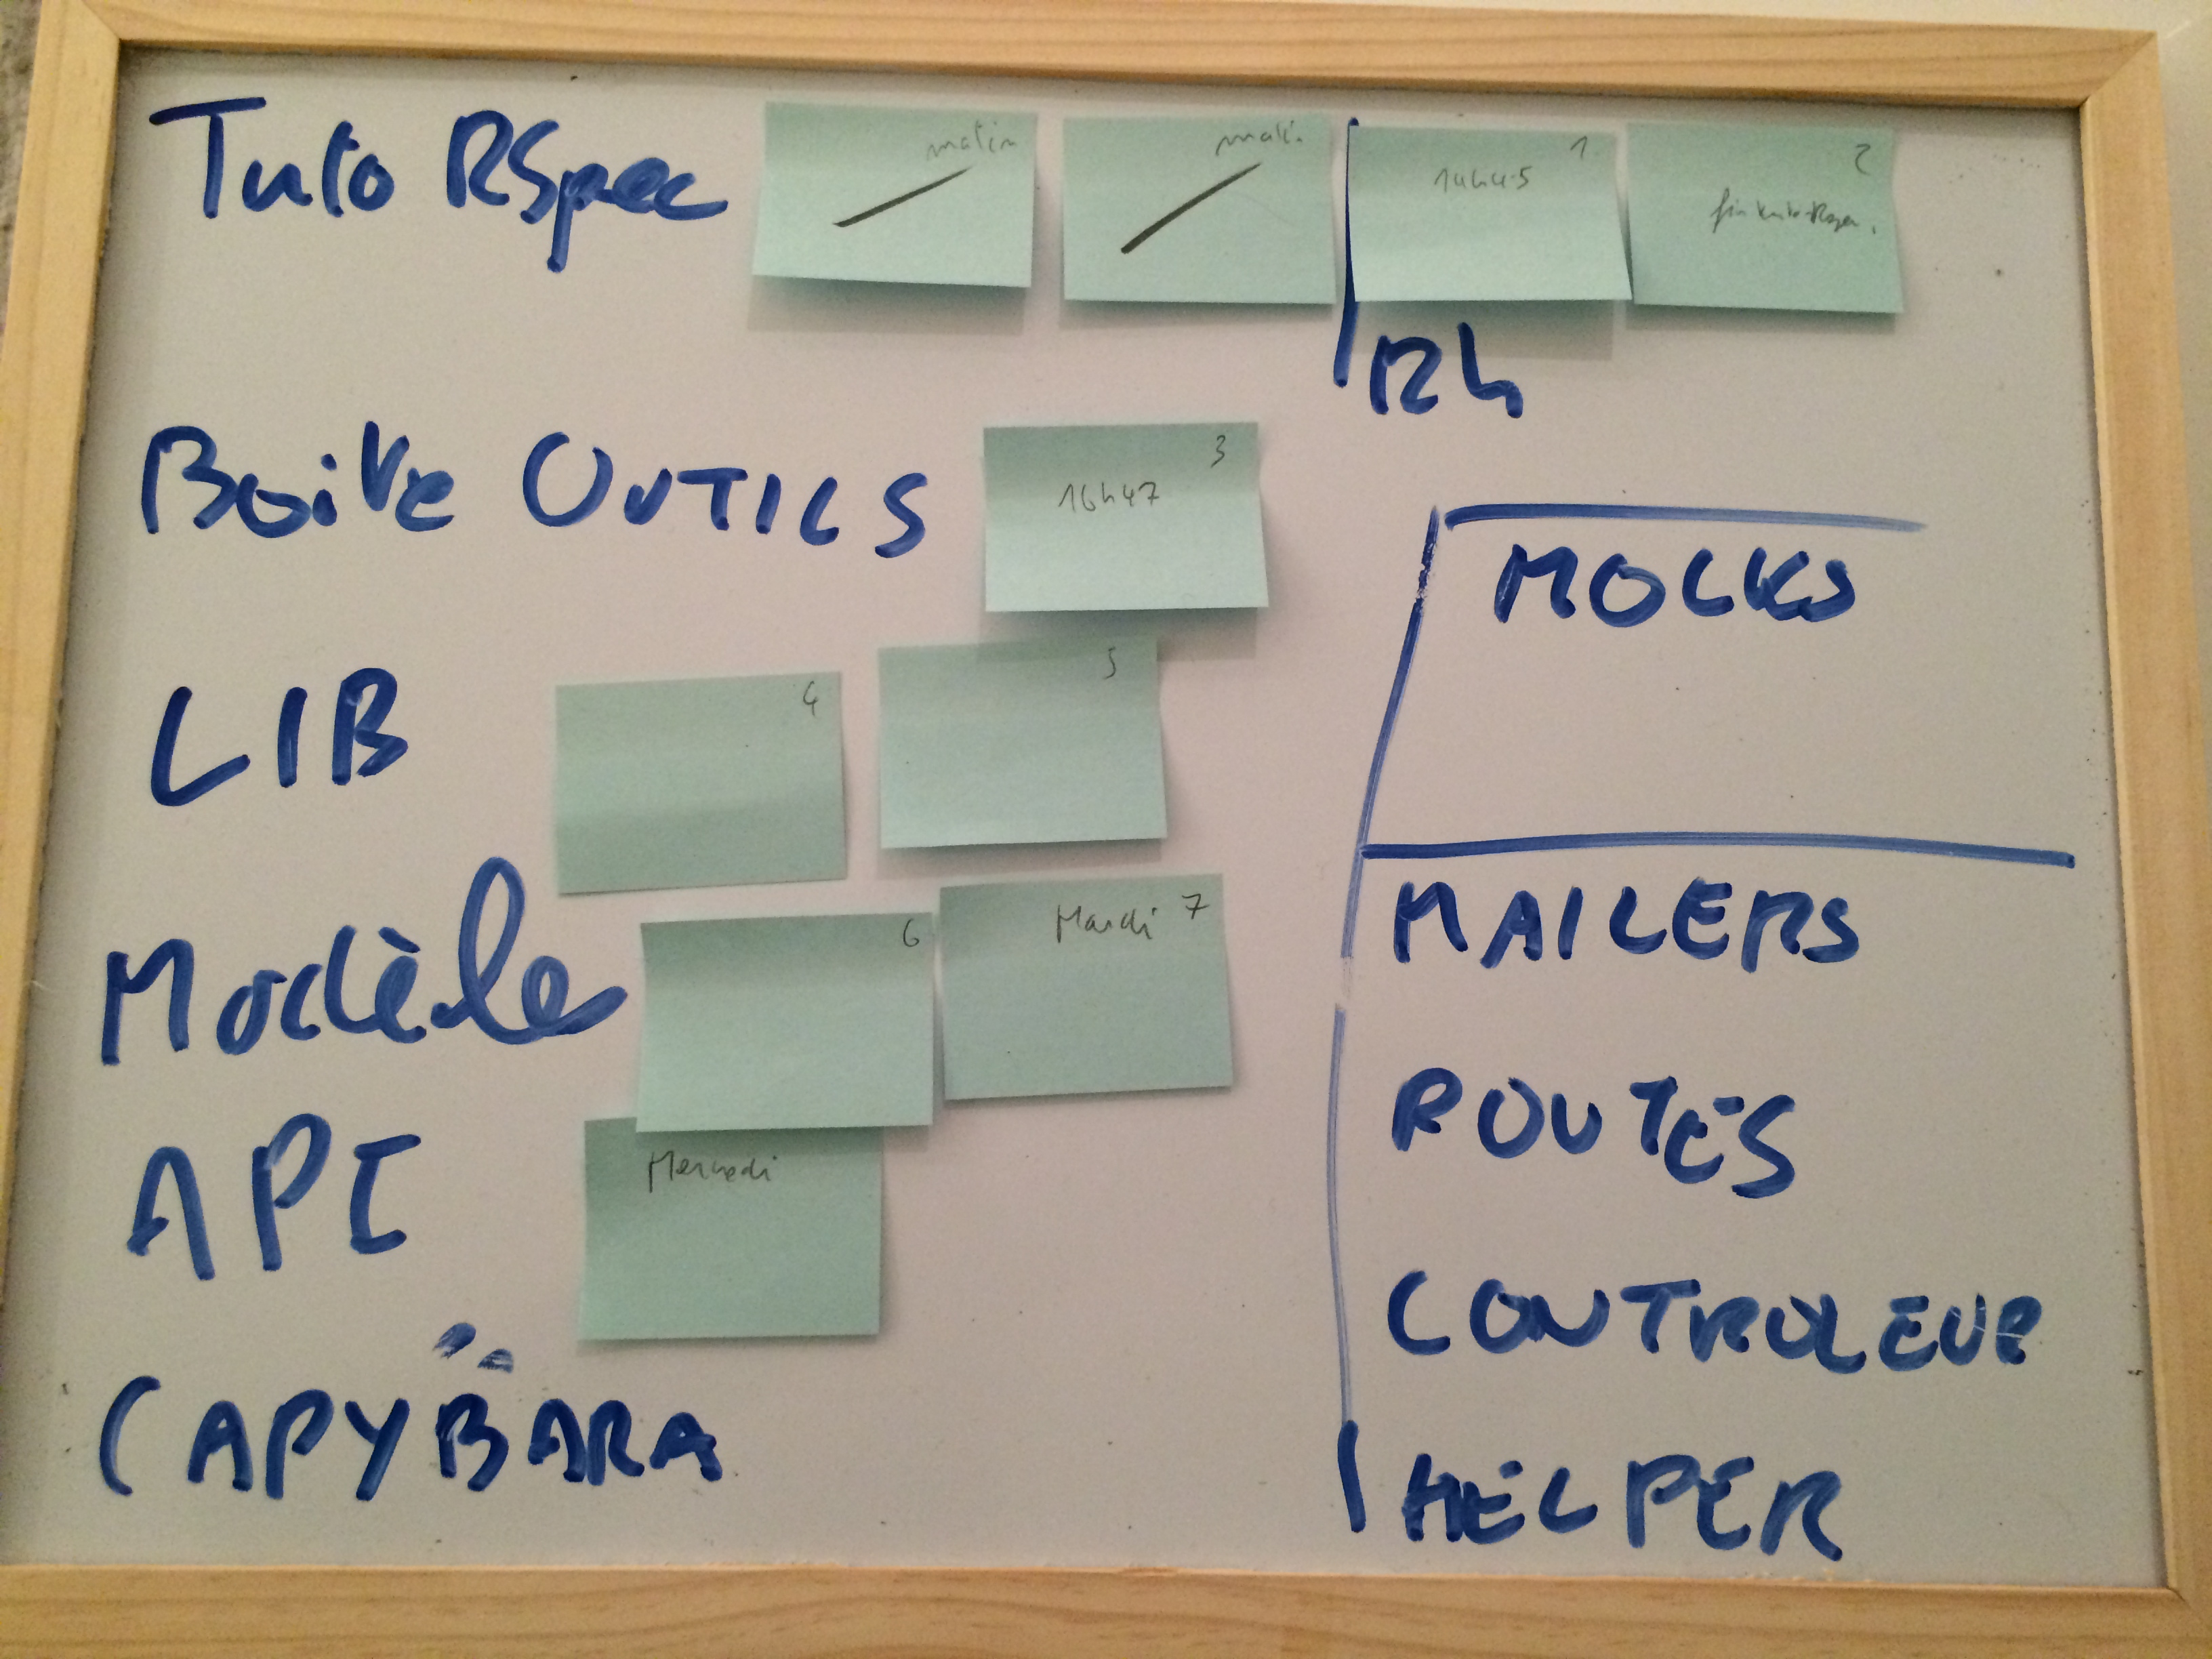 Tuto RSpec
matin
mati.
1
14h45
2
fin tuto Rspec.
12h
Boite OUTILS
3
16h47
MOCKS
LIB
4
5
MAILERS
Modèle
6
Mardi 7
ROUTES
API
Mercredi
CONTROLEUR
CAPYBARA
HELPER